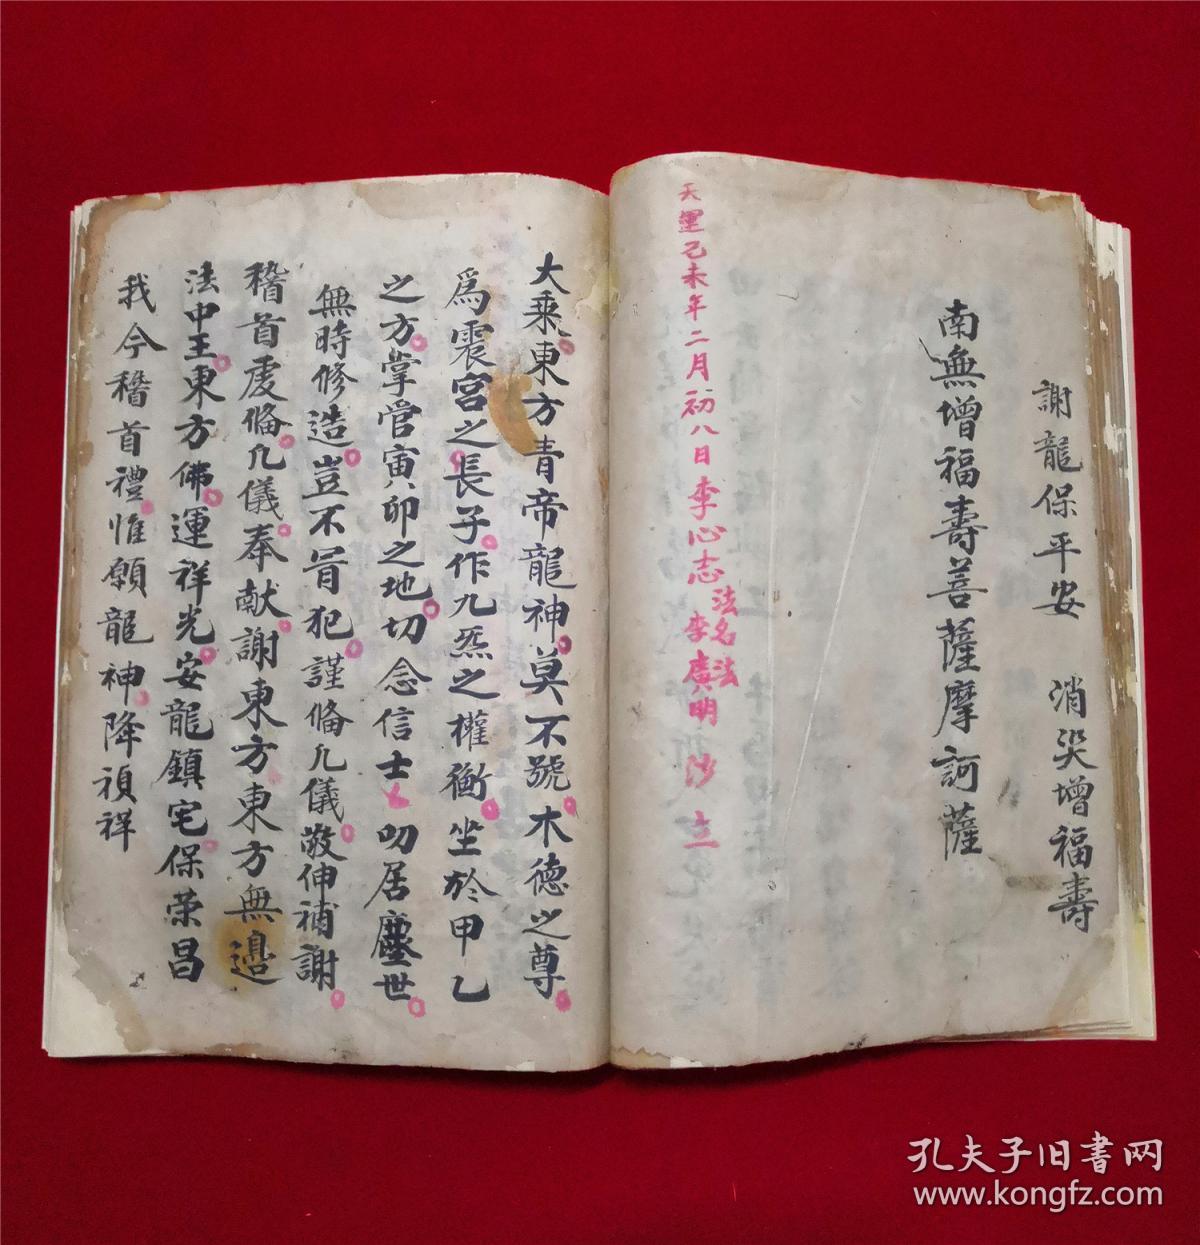 謝龍保平安 消災增福壽
南無增福壽菩薩摩訶薩
天運己未年二月初八日李心志法名法
李廣明 沙 立
大乘東方青帝龍神莫不號木德之尊
爲震宮之長子作九炁之權衡坐於甲乙
之方掌管寅卯之地切念信士 叨居塵世
無時修造豈不冐犯謹俻凢儀敬伸補謝
稽首虔俻凢儀奉献謝東方東方無邉
法中王東方佛運祥光安龍鎮宅保荣昌
我今稽首禮惟願龍神降禎祥
孔夫子旧书网
www.kongfz.com